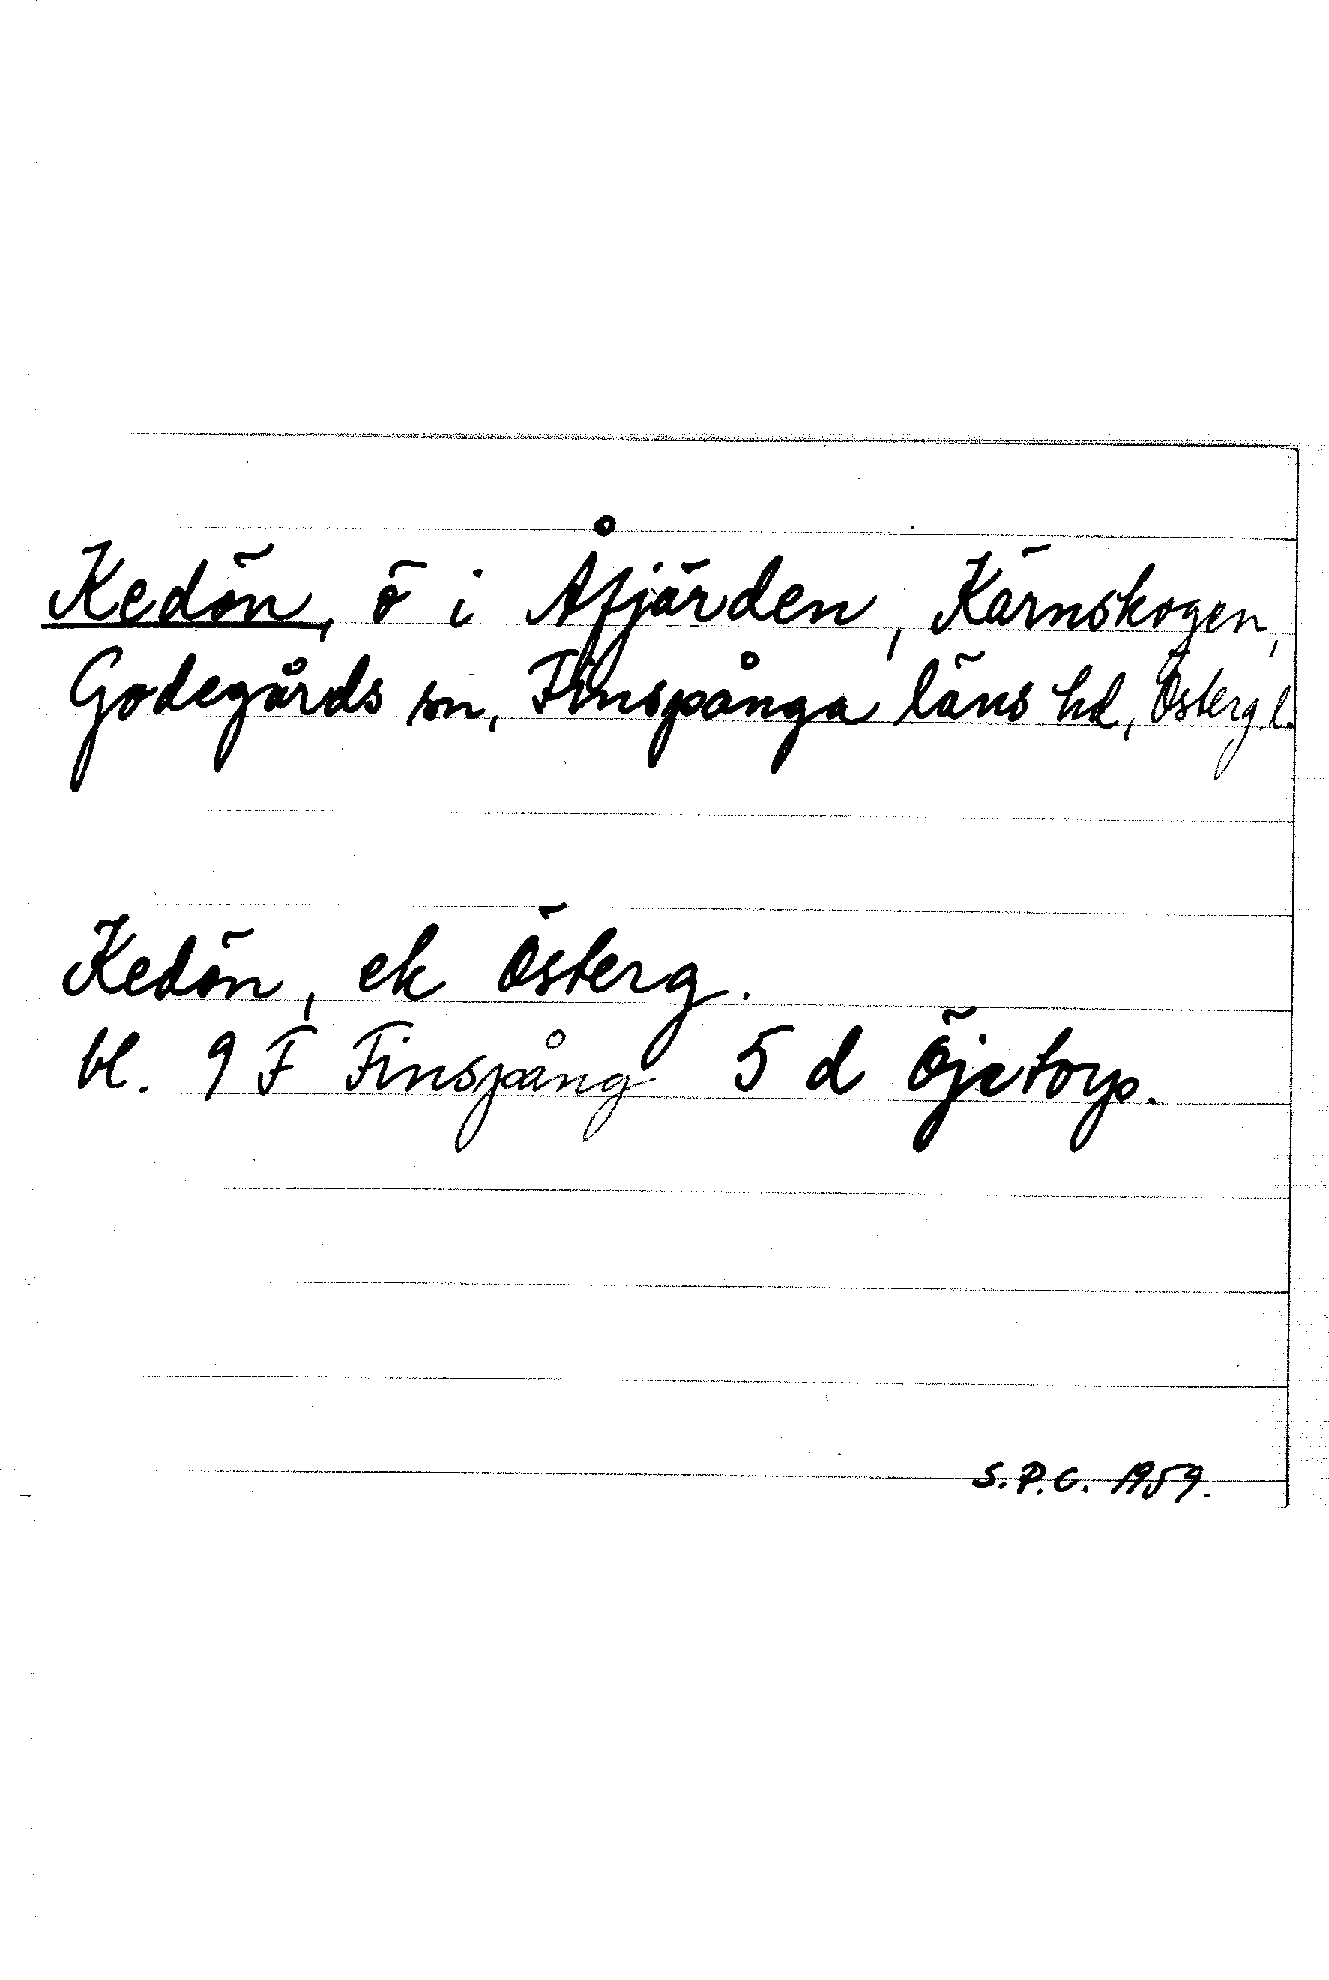 Kedön, ö i Åfjärden, Kärnskogen,
Godegårds sn, Finspånga läns hd, Österg.l.
Kedön, ek Österg.
bl. 9 F Finspång 5 d Öjetorp.
S.P.G. 1959.